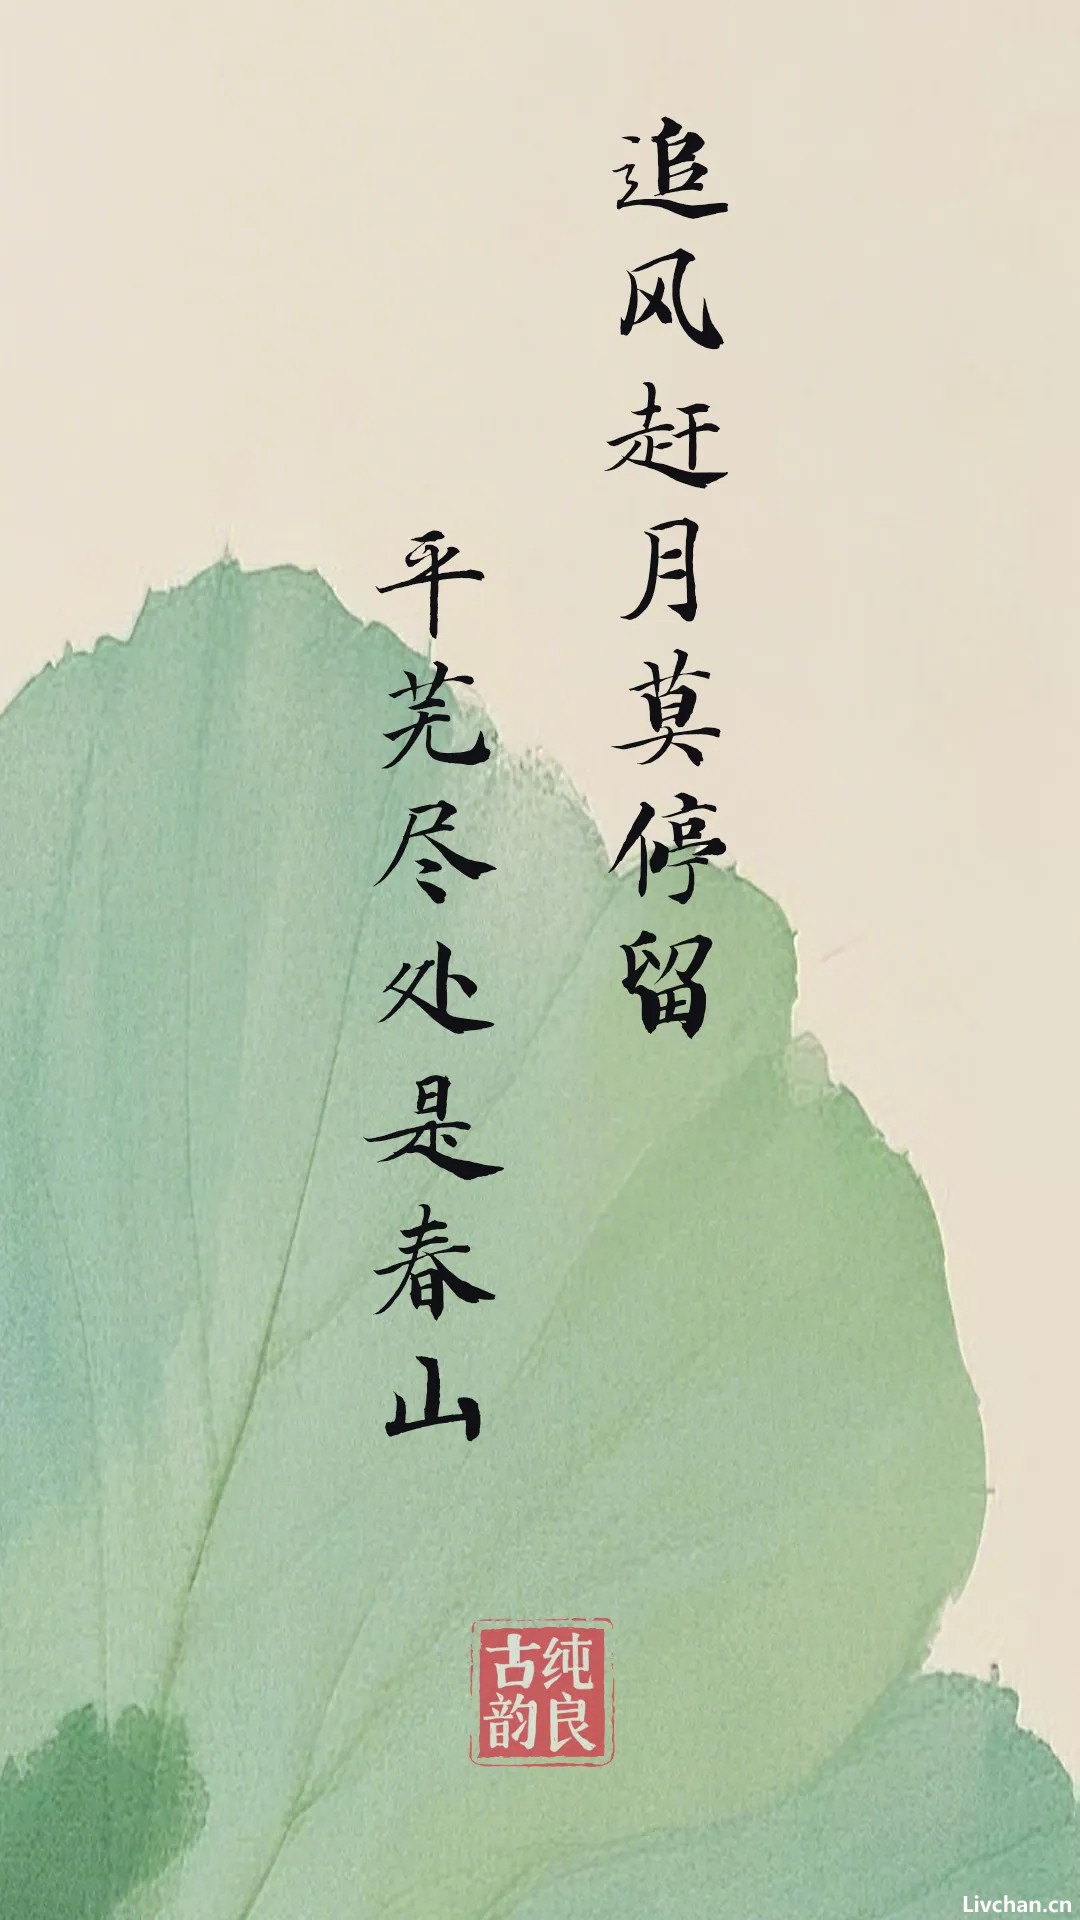 追风赶月莫停留
平芜尽处是春山
纯良
古韵
Livchan.cn